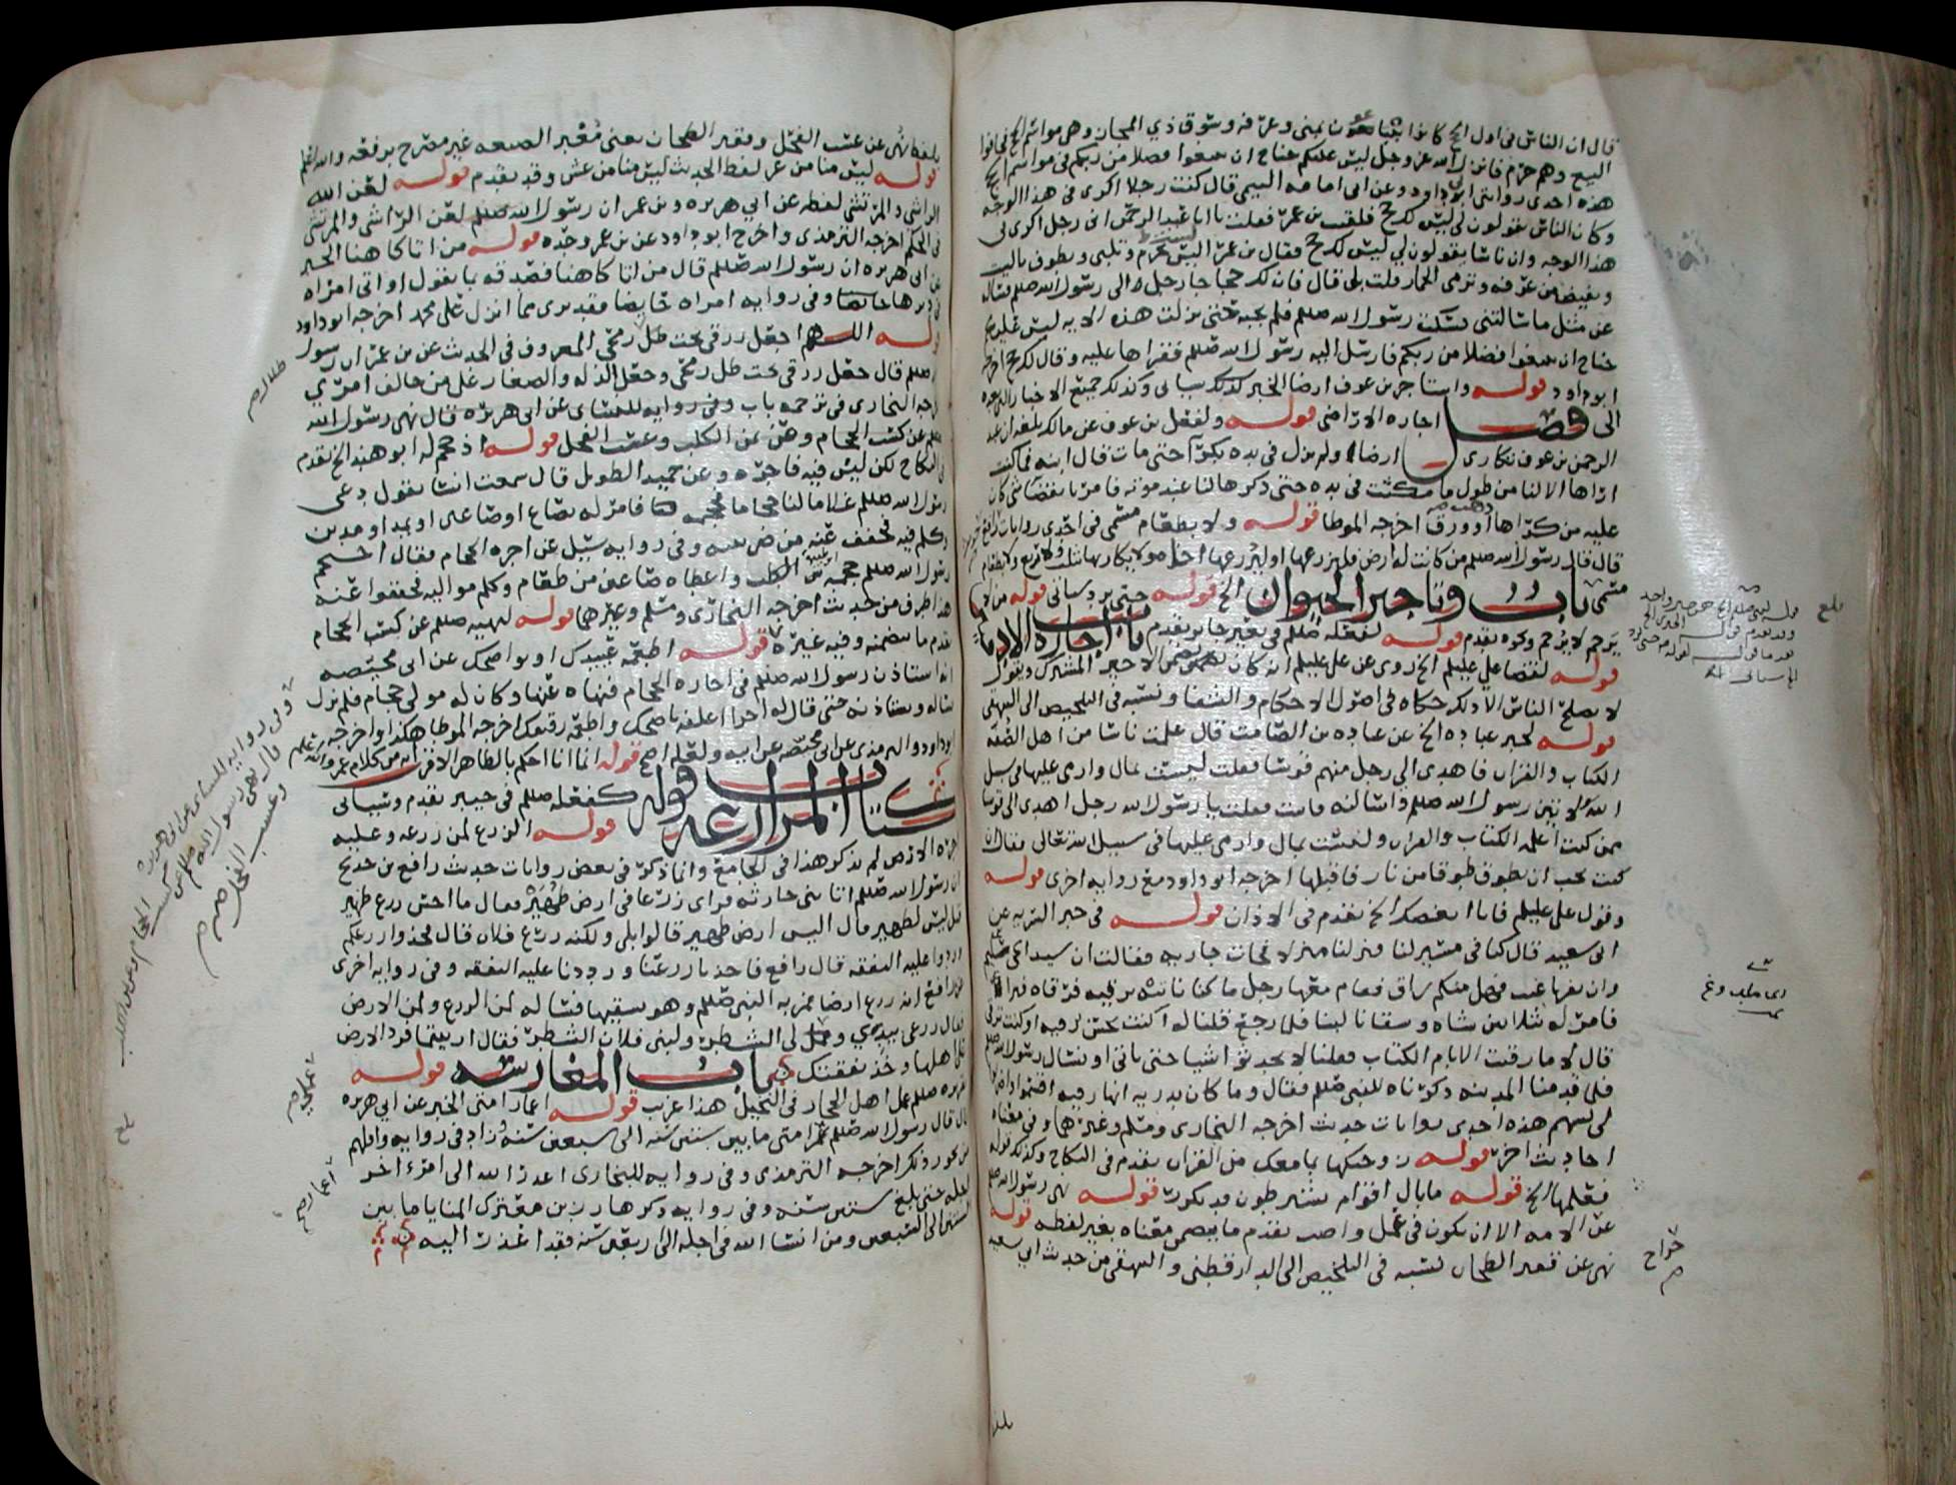 قال ان الناس فى اول الحج كانوا يتبايعون بمنى وعرفه وسوق ذي المجاز وهى مواسم الحج فخافوا
البيع وهم حرم فانزل الله عز وجل ليس عليكم جناح ان تبتغوا فضلا من ربكم فى مواسم الحج
هذه احدى روايتى ابى داود وعن ابى امامه التيمى قال كنت رجلا اكرى فى هذا الوجه
وكان الناس يقولون لى ليس لك حج فلقيت بن عمر فقلت يا ابا عبد الرحمن انى رجل اكرى فى
هذا الوجه وان ناسا يقولون لي ليس لك حج فقال بن عمر اليس تحرم وتلبى وتطوف بالبيت
وتفيض من عرفه وترمى الجمار قلت بلى قال فان لك حجا جا رجل الى رسول الله صللم فساله
عن مثل ما سالتنى فسكت رسول الله صللم فلم يجبه حتى نزلت هذه الايه ليس عليكم
جناح ان تبتغوا فضلا من ربكم فارسل اليه رسول الله صللم فقراها عليه وقال لك حج اخرجه
ابو داود قوله واستاجر بن عوف ارضا الخبر كذلك سياتى وكذلك جميع الاخبار
الى فصل اجاره الاراضى قوله ولفعل بن عوف عن مالك بلغه ان عبد
الرحمن بن عوف تكارى ارضا ولم تزل فى يده بكرا حتى مات قال ابنه فما كنت
اراها الا لنا من طول ما مكثت فى يده حتى ذكرها لنا عند موته فامرنا بقضا شى كان
عليه من كراها ذهب او ورق اخرجه الموطا قوله ولا بطعام مسمى فى احدى روايات رافع
قال قال رسول الله صللم من كانت له ارض فليزرعها او ليزرعها اخاه ولا يكاريها بثلث ولا بربع ولا بطعام
مسمى باب وتاجير الحيوان الخ قوله حتى يرد سياتى قوله من لا
يرحم لا يرحم ونحوه تقدم قوله لفعله صللم فى بعير جابر تقدم باب اجاره الادميين
قوله لقضا علي عليلم الخ روى عن على عليلم انه كان يضمن الاجير المشترك ويقول
لا يصلح الناس الا ذلك حكاه فى اصول الاحكام والشفا ونسبه فى التلخيص الى البيهقى
قوله لخبر عباده الخ عن عباده بن الصامت قال علمت ناسا من اهل الصفه
الكتاب والقران فاهدى الي رجل منهم قوسا فقلت ليست بمال وارمى عليها فى سبيل
الله لاتين رسول الله صللم واسالنه فاتيت فقلت يا رسول الله رجل اهدى الى قوسا
ممن كنت اعلمه الكتاب والقران وليست بمال وارمى عليها فى سبيل الله تعالى فقال ان
كنت تحب ان تطوق طوقا من نار فاقبلها اخرجه ابو داود مع روايه اخرى قوله
وقول على عليلم فانا ابغضك الخ تقدم فى الاذان قوله فى خبر الترقيه عن
ابى سعيد قال كنا فى مسير لنا فنزلنا منزلا فجات جاريه فقالت ان سيد الحى سليم
وان نفرنا غيب فهل منكم راق فقام معها رجل ما كنا نابنه برقيه فرقاه فبرا
فامر له بثلاثين شاه وسقانا لبنا فلما رجع قلنا له اكنت تحسن رقيه او كنت ترقى
قال لا ما رقيت الا بام الكتاب فقلنا لا تحدثوا شيا حتى ناتى او نسال رسول الله صللم
فلما قدمنا المدينه ذكرناه للنبى صللم فقال وما كان يدريه انها رقيه اقسموا واضربوا
لى بسهم هذه احدى روايات حديث اخرجه البخارى ومسلم وغيرهما وفى معناه
احاديث اخر قوله زوجتكها بما معك من القران تقدم فى النكاح وكذلك قوله
فعلمها الخ قوله ما بال اقوام يشترطون قد تكرر قوله نهى رسول الله صللم
عن الامه الا ان تكون فى عمل واصب تقدم ما يتضمن معناه بغير لفظه قوله
نهى عن قفيز الطحان نسبه فى التلخيص الى الدارقطنى والبيهقى من حديث ابى سعيد
خراج
بلفظ نهى عن عسب الفحل وقفيز الطحان يعنى مغير الصيغه غير مصرح برفعه والله اعلم
قوله ليس منا من غر لفظ الحديث ليس منا من غش وقد تقدم قوله لعن الله
الراشى والمرتشى لفظه عن ابي هريره وبن عمر ان رسول الله صللم لعن الراشى والمرتشى
فى الحكم اخرجه الترمذى واخرج ابو داود عن بن عمر وحده قوله من اتى كاهنا الخبر
عن ابى هريره ان رسول الله صللم قال من اتى كاهنا فصدقه بما يقول او اتى امراه
فى دبرها وفى روايه امراه حايضا فقد برى مما انزل على محمد اخرجه ابو داود
قوله اللهم اجعل رزقى تحت ظل رمحى المعروف فى الحديث عن بن عمر ان رسول
الله صللم قال جعل رزقى تحت ظل رمحى وجعل الذله والصغار على من خالف امرى
اخرجه البخارى فى ترجمه باب وفى روايه للنساى عن ابى هريره قال نهى رسول الله
صللم عن كسب الحجام وعن ثمن الكلب وعسب الفحل قوله اذ حجم له ابو هند الخ تقدم
فى النكاح لكن ليس فيه فاجره وعن حميد الطويل قال سمعت انسا يقول دعى
رسول الله صللم غلاما لنا حجاما فحجمه فامر له بصاع او صاعين او بمد او مدين
وكلم فيه فخفف عنه من ضريبته وفى روايه سيل عن اجره الحجام فقال احتجم
رسول الله صللم حجمه ابو طيبه واعطاه صاعين من طعام وكلم مواليه فخففوا عنه
هذا طرف من حديث اخرجه البخارى ومسلم وغيرهما قوله لنهيه صللم عن كسب الحجام
تقدم ما يتضمنه وفيه غيره قوله اطعمه عبيدك او نواضحك عن ابى محيصه
انه استاذن رسول الله صللم فى اجاره الحجام فنهاه عنها وكان له مولى حجام فلم يزل
يساله ويستاذنه حتى قال له اخرا اعلفه ناضحك واطعمه رقيقك اخرجه الموطا هكذا واخرجه
ابو داود والترمذى عن ابن محيصه عن ابيه ولعله اصح قوله انما انا احكم بالظاهر الاقرب انه من كلام عمر
كتاب المزارعه قوله كفعله صللم فى خيبر تقدم وسياتى
قوله الزرع لمن زرعه وعليه
اجره الارض لم يذكر هذا فى الجامع وانما ذكر فى بعض روايات حديث رافع بن خديج
ان رسول الله صللم اتا بنى حارثه فراى زرعا فى ارض ظهير فقال ما احسن زرع ظهير
قيل ليس لظهير قال اليس ارض ظهير قالوا بلى ولكنه زرع فلان قال فخذوا زرعكم
وردوا عليه النفقه قال رافع فاخذنا زرعنا ورددنا عليه النفقه وفى روايه اخرى
عن رافع انه زرع ارضا فمر به النبى صللم وهو يسقيها فساله لمن الزرع ولمن الارض
فقال زرعى ببذري وعملى لي الشطر ولبنى فلان الشطر فقال اربيتما فرد الارض
على اهلها وخذ نفقتك باب المغارسه قوله
تقريره صللم عمل اهل الحجاز فى النخيل هذا غريب قوله اعمار امتى الخبر عن ابى هريره
قال قال رسول الله صللم عمر امتى ما بين ستين سنه الى سبعين سنه زاد فى روايه واقلهم
من يجوز ذلك اخرجه الترمذى وفى روايه للبخارى اعذر الله الى امرء اخر
اجله حتى بلغ ستين سنه وفى روايه ذكرها رزين معترك المنايا ما بين
الستين الى السبعين ومن انسا الله فى اجله الى اربعين سنه فقد اعذر اليه
ظلال صح
وفى روايه للنساى عن ابى هريره
قال نهى رسول الله صللم عن كسب الحجام وعن ثمن الكلب
وعسب الفحل صح
اعمار صح